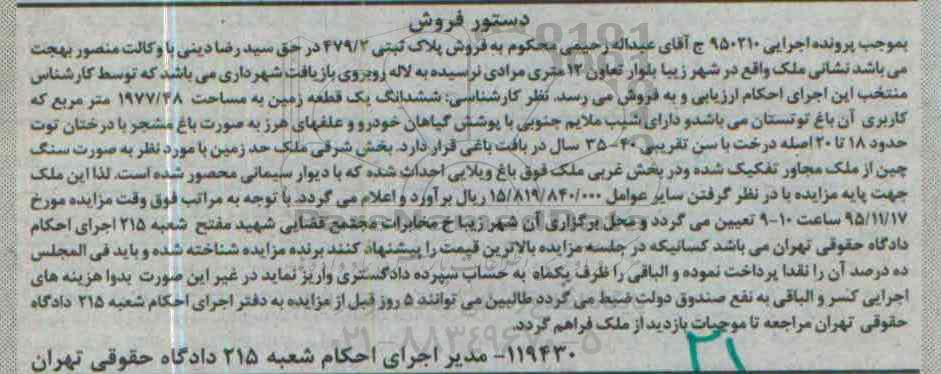 دستور فروش
بموجب پرونده اجرایی ۹۵۰۲۱۰ ج آقای عبداله رحیمی محکوم به فروش پلاک ثبتی ۴۷۹/۲ در حق سید رضا دینی با وکالت منصور بهجت
می باشد نشانی ملک واقع در شهر زیبا بلوار تعاون ۱۲ متری مرادی نرسیده به لاله روبروی بازیافت شهرداری می باشد که توسط کارشناس
منتخب این اجرای احکام ارزیابی و به فروش می رسد. نظر کارشناسی: ششدانگ یک قطعه زمین به مساحت ۱۹۷۷/۴۸ متر مربع که
کاربری آن باغ توتستان می باشدو دارای شیب ملایم جنوبی با پوشش گیاهان خودرو و علفهای هرز به صورت باغ مشجر با درختان توت
حدود ۱۸ تا ۲۰ اصله درخت با سن تقریبی ۴۰- ۳۵ سال در بافت باغی قرار دارد. بخش شرقی ملک حد زمین با مورد نظر به صورت سنگ
چین از ملک مجاور تفکیک شده ودر بخش غربی ملک فوق باغ ویلایی احداث شده که با دیوار سیمانی محصور شده است. لذا این ملک
جهت پایه مزایده با در نظر گرفتن سایر عوامل ۱۵/۸۱۹/۸۴۰/۰۰۰ ریال برآورد و اعلام می گردد. با توجه به مراتب فوق وقت مزایده مورخ
۹۵/۱۱/۱۷ ساعت ۱۰-۹ تعیین می گردد و محل برگزاری آن شهر زیبا خ مخابرات مجتمع قضایی شهید مفتح شعبه ۲۱۵ اجرای احکام
دادگاه حقوقی تهران می باشد کسانیکه در جلسه مزایده بالاترین قیمت را پیشنهاد کنند برنده مزایده شناخته شده و باید فی المجلس
ده درصد آن را نقدا پرداخت نموده و الباقی را ظرف یکماه به حساب سپرده دادگستری واریز نماید در غیر این صورت بدوا هزینه های
اجرایی کسر و الباقی به نفع صندوق دولت ضبط می گردد طالبین می توانند ۵ روز قبل از مزایده به دفتر اجرای احکام شعبه ۲۱۵ دادگاه
حقوقی تهران مراجعه تا موجبات بازدید از ملک فراهم گردد.
۱۱۹۴۳۰- مدیر اجرای احکام شعبه ۲۱۵ دادگاه حقوقی تهران
۲۱